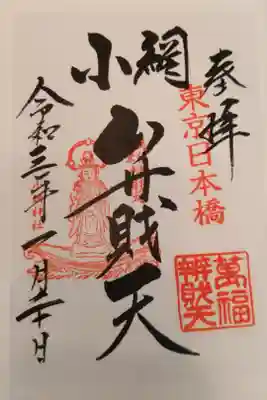 奉拝
東京日本橋
小網
弁財天
萬福
辨財天
令和三年一月二十日